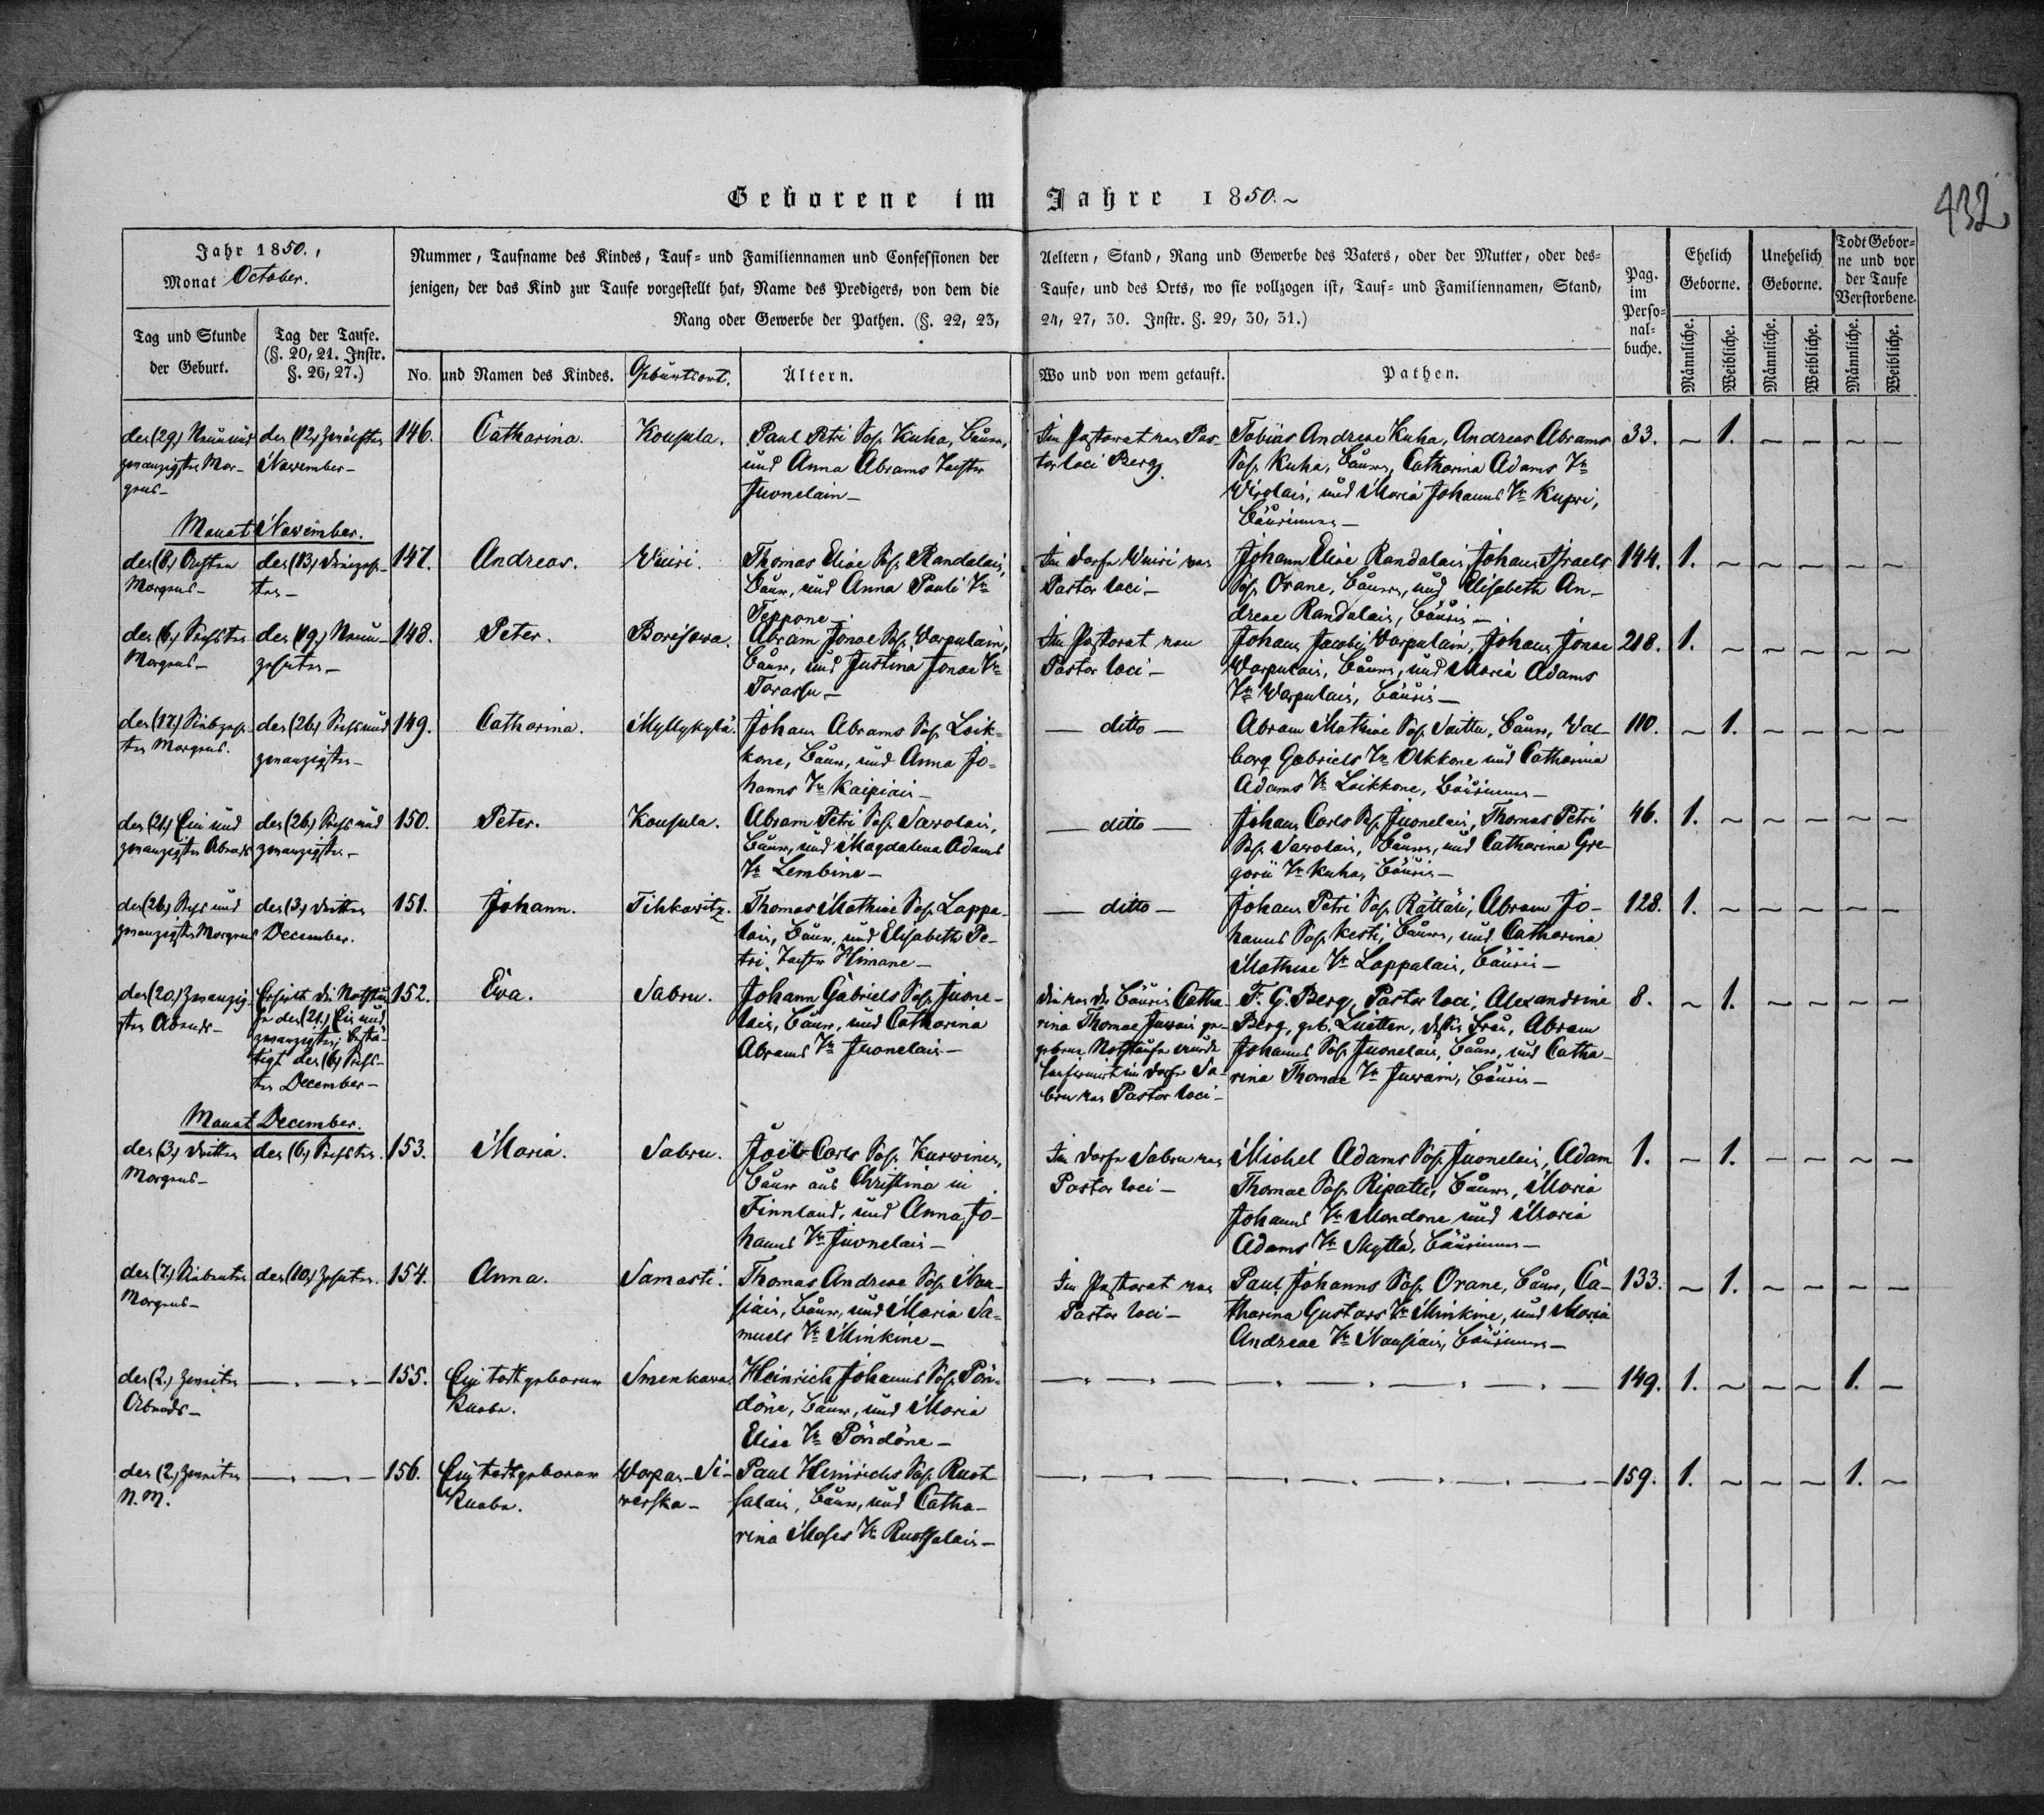 Geborene im Jahre 1850.~
432
Jahr 1850.,
Monat October.
Nummer, Taufname des Kindes, Tauf= und Familiennamen und Confessionen der Aeltern, Stand, Rang und Gewerbe des Vaters, oder der Mutter, oder des=
jenigen, der das Kind zur Taufe vorgestellt hat, Name des Predigers, von dem die Taufe, und des Orts, wo sie vollzogen ist, Tauf= und Familiennamen, Stand,
Rang oder Gewerbe der Pathen. (§. 22, 23, 24, 27, 30. Instr. §. 29, 30, 31.)
Pag.
im
Perso=
nal=
buche.
Ehelich
Geborne.
Unehelich
Geborne.
Todt Gebor=
ne und vor
der Taufe
Verstorbene.
Männliche. Weibliche. Männliche. Weibliche. Männliche. Weibliche.
Tag und Stunde
der Geburt.
Tag der Taufe.
(§. 20, 21. Instr.
§. 26, 27.)
No. und Namen des Kindes. Geburtsort. Ältern. Wo und von wem getauft. Pathen.
den (29.) Neun und
zwanzigsten Mor-
gens-
den (12.) Zwölften
November-
146. Catharina. Koupula.
Paul Petri Sohn Kuha, Bauer,
und Anna Abrams Tochter
Juonelain-
Im Pastorat von Pas-
tor loci Berg.
Tobias Andreae Kuha, Andreas Abrams
Sohn Kuha, Bauern, Catharina Adams Tr
Wirolain, und Maria Johanns Tr Kupri,
Bäurinnen-
33. ~ 1. ~ ~ ~ ~
Monat November.
den (8.) Achten
Morgens-
den (13.) Dreizehn-
ten-
147. Andreas. Wuiri.
Thomas Eliae Sohn Randalain,
Bauer, und Anna Pauli Tr
Teppone-
Im Dorfe Wuiri von
Pastor loci-
Johann Eliae Randalain, Johann Israels
Sohn Orane, Bauern, und Elisabeth An-
dreae Randalain, Bäurin-
144. 1. ~ ~ ~ ~ ~
den (6.) Sechsten
Morgens-
den (19.) Neun-
zehnten-
148. Peter. Borisowa.
Abram Jonae Sohn Warpulain,
Bauer, und Justina Jonae Tr
Tarassu-
Im Pastorat von
Pastor loci-
Johann Jacobi Warpulain, Johann Jonae
Warpulain, Bauern, und Maria Adams
Tr Warpulain, Bäurin-
218. 1. ~ ~ ~ ~ ~
den (17.) Siebzehn-
ten Morgens.
den (26.) Sechs und
zwanzigsten-
149. Catharina. Myllykylä.
Johann Abrams Sohn Loik-
kone, Bauer, und Anna Jo-
hanns Tr Kaipiain-
- ditto -
Abram Mathiae Sohn Saitta, Bauer, Wal-
borg Gabriels Tr Okkone und Catharina
Adams Tr Loikkone, Bäurinnen-
110. ~ 1. ~ ~ ~ ~
den (21.) Ein und
zwanzigsten Abends
den (26.) Sechs und
zwanzigsten-
150. Peter. Koupula.
Abram Petri Sohn Sawolain,
Bauer, und Magdalena Adams
Tr Lembine-
- ditto -
Johann Carls Sohn Juonelain, Thomas Petri
Sohn Sawolain, Bauern, und Catharina Gre-
gorii Tr Kuha, Bäurin-
46. 1. ~ ~ ~ ~ ~
den (26.) Sechs und
zwanzigsten Morgens
den (3.) Dritten
December.
151. Johann. Tihkowitz.
Thomas Mathiae Sohn Lappa-
lain, Bauer, und Elisabeth Pe-
tri Tochter Himane-
- ditto -
Johann Petri Sohn Rättäli, Abram Jo-
hanns Sohn Kesti, Bauern, und Catharina
Mathiae Tr Lappalain, Bäurin-
128. 1. ~ ~ ~ ~ ~
den (20.) Zwanzig-
sten Abends-
Erhielt die Nothtau-
fe den (21.) Ein und
zwanzigsten; bestä-
tigt den (6.) Sechs-
ten December-
152. Eva. Sabru.
Johann Gabriels Sohn Juone-
lain, Bauer, und Catharina
Abrams Tr Juonelain-
Die von der Bäurin Catha-
rina Thomae Juwain ge-
gebene Nothtaufe wurde
confirmirt im Dorfe Sa-
bru von Pastor loci-
F. G. Berg, Pastor loci, Alexandrine
Berg, geb. Luitten, dessen Frau, Abram
Johanns Sohn Juonelain, Bauer, und Catha-
rina Thomae Tr Juwain, Bäurin-
8. ~ 1. ~ ~ ~ ~
Monat December.
den (3.) Dritten
Morgens-
den (6.) Sechsten.
153. Maria. Sabru.
Joel Carls Sohn Kurwinen,
Bauer aus Christina in
Finnland, und Anna Jo-
hanns Tr Juonelain-
Im Dorfe Sabru von
Pastor loci-
Michel Adams Sohn Juonelain, Adam
Thomae Sohn Ripatti, Bauern, Maria
Johanns Tr Mondone und Maria
Adams Tr Skyttä, Bäurinnen-
1. ~ 1. ~ ~ ~ ~
den (7.) Siebenten
Morgens-
den (10.) Zehnten.
154. Anna. Samosti.
Thomas Andreae Sohn Nau-
siain, Bauer, und Maria Sa-
muels Tr Minkine-
Im Pastorat von
Pastor loci-
Paul Johanns Sohn Orane, Bauer, Ca-
tharina Gustavs Tr Minkine, und Maria
Andreae Tr Nausiain, Bäurinnen-
133. ~ 1. ~ ~ ~ ~
den (2.) Zweiten
Abends-
155. Ein todtgeborner
Knabe.
Smenkowa.
Heinrich Johanns Sohn Pön-
döne, Bauer, und Maria
Eliae Tr Pöndöne-
149. 1. ~ ~ ~ 1. ~
den (2.) Zweiten
N. M.
156. Ein todtgeborner
Knabe.
Worpas-Si-
werska-
Paul Heinrichs Sohn Ruot-
salain, Bauer, und Catha-
rina Moses Tr Ruotsalain-
159. 1. ~ ~ ~ 1. ~